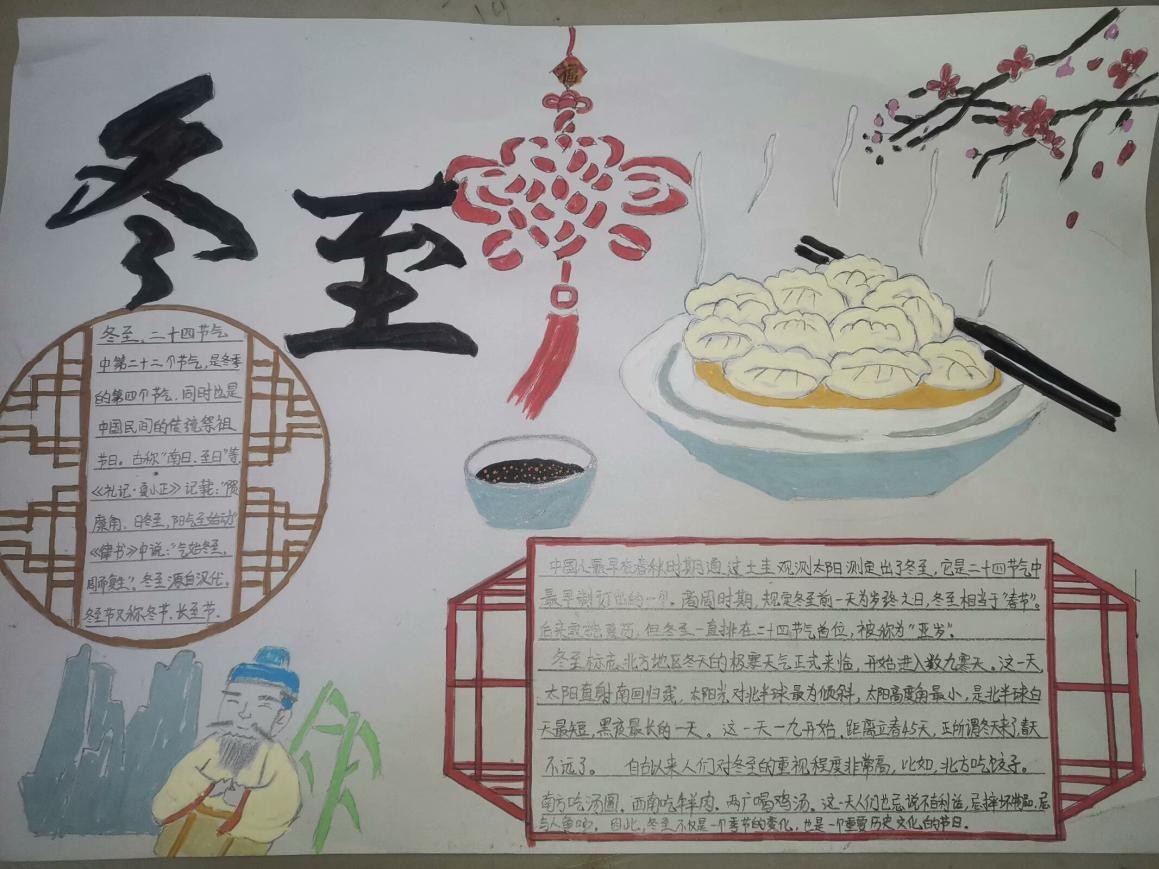 冬至
福
冬至，二十四节气
中第二十二个节气，是冬季
的第四个节气，同时也是
中国民间的传统祭祖
节日。古称“南日、至日”等，
《礼记·夏小正》记载：“陨
麋角，日冬至，阳气至始动”
《律书》中说：“气始冬至，
周而复生”。冬至源自汉代，
冬至节又称冬节、长至节.
中国人最早在春秋时期通过土圭观测太阳测定出了冬至，它是二十四节气中
最早制订出的一个。商周时期，规定冬至前一天为岁终之日，冬至相当于“春节”。
后来 ，但冬至一直排在二十四节气首位，被称为“亚岁”.
冬至标志北方地区冬天的极寒天气正式来临，开始进入数九寒天。这一天，
太阳直射南回归线，太阳光对北半球最为倾斜，太阳高度角最小，是北半球白
天最短，黑夜最长的一天。这一天一九开始，距离立春45天，正所谓冬来了春天
不远了。 自古以来人们对冬至的重视程度非常高，比如，北方吃饺子，
南方吃汤圆，西南吃羊肉，两广喝鸡汤，这一天人们也忌说不吉利话，忌摔坏物品，忌
与人争吵。因此，冬至不仅是一个季节的变化，也是一个重要历史文化的节日.